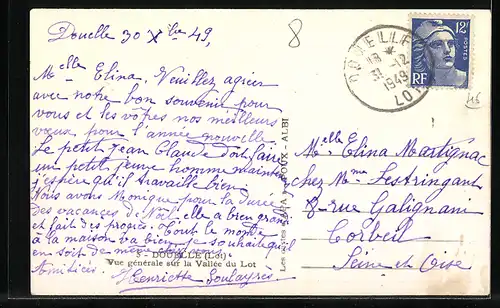 Douelle 30 Xbre 49,
Melle Elina. Veuillez agréer
avec notre bon souvenir pour
vous et les vôtres nos meilleurs
vœux pour l'année nouvelle.
Le petit Jean Claude doit faire
un petit jeune homme maintenant
j'espère qu'il travaille bien
Nous avons Monique pour la durée
des vacances de Noël, elle a bien grandi
et fait des progrès. Tout le monde
à la maison va bien, je souhaite qu'il
en soit de même
Amitiés. Henriette Soulayrès
5 - DOUELLE (Lot)
Vue générale sur la Vallée du Lot
POUX - ALBI
DOUELLE
31 -12
1949
LOT
12F
POSTES
RF
8
Melle Elina Martignac
chez Mme Lestringant
8 rue Galignani
Corbeil
Seine et Oise